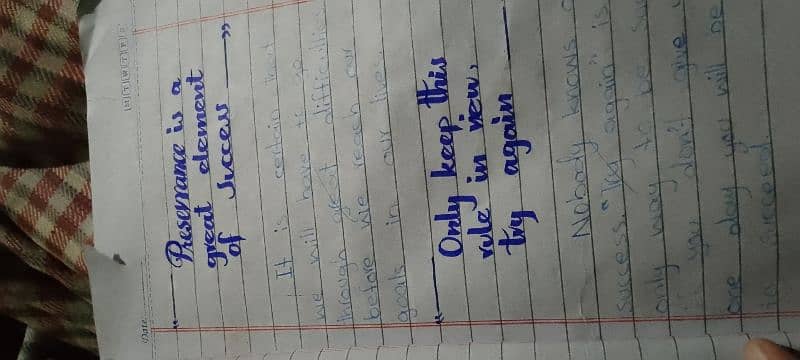 Date
"—— Preserrance is a
great element
of Success ——"
It is certain that
we will have to go
through great difficulties
before we reach our
goals in our lives.
"—— Only keep this
rule in view,
try again ——
Nobody knows
success. "Try again" is
only way to be
if you don't give
one day you will be
in succeed.